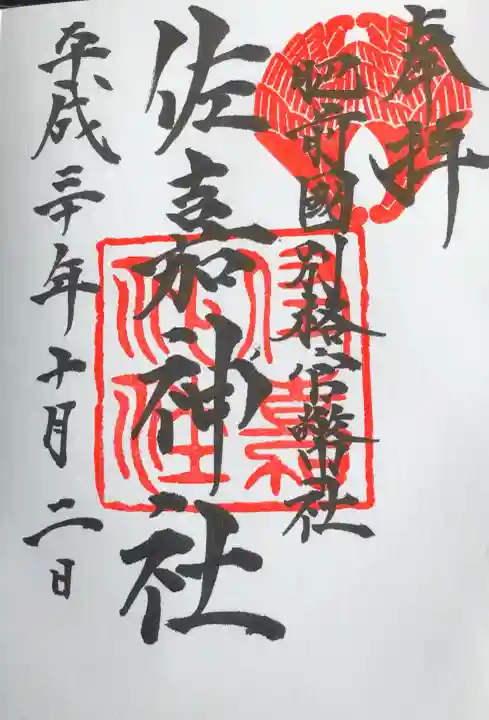 奉拝
肥前國別格官幣小社
佐嘉神社
平成三十年十月二日
佐嘉
神社